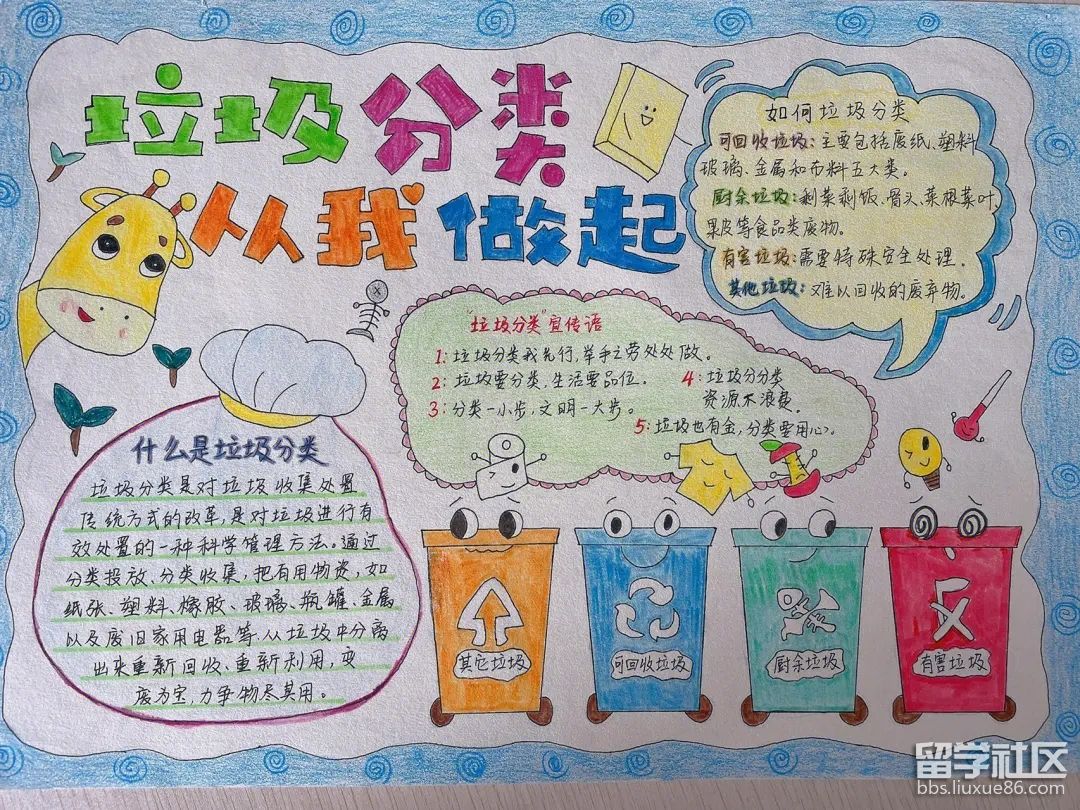 垃圾分类
从我做起
如何垃圾分类
可回收垃圾:主要包括废纸、塑料
玻璃、金属和布料五大类。
厨余垃圾:剩菜剩饭、骨头、菜根菜叶、
果皮等食品类废物。
有害垃圾:需要特殊安全处理.
其他垃圾:难以回收的废弃物。
“垃圾分类”宣传语
1:垃圾分类我先行,举手之劳处处做。
2:垃圾要分类,生活要品位.
3:分类一小步,文明一大步。
4:垃圾分分类
资源不浪费.
5:垃圾也有金,分类要用心。
什么是垃圾分类
垃圾分类是对垃圾收集处置
传统方式的改革,是对垃圾进行有
效处置的一种科学管理方法。通过
分类投放、分类收集,把有用物资,如
纸张、塑料、橡胶、玻璃、瓶罐、金属
以及废旧家用电器等.从垃圾中分离
出来重新回收、重新利用,变
废为宝,力争物尽其用。
其它垃圾
可回收垃圾
厨余垃圾
有害垃圾
留学社区
bbs.liuxue86.com